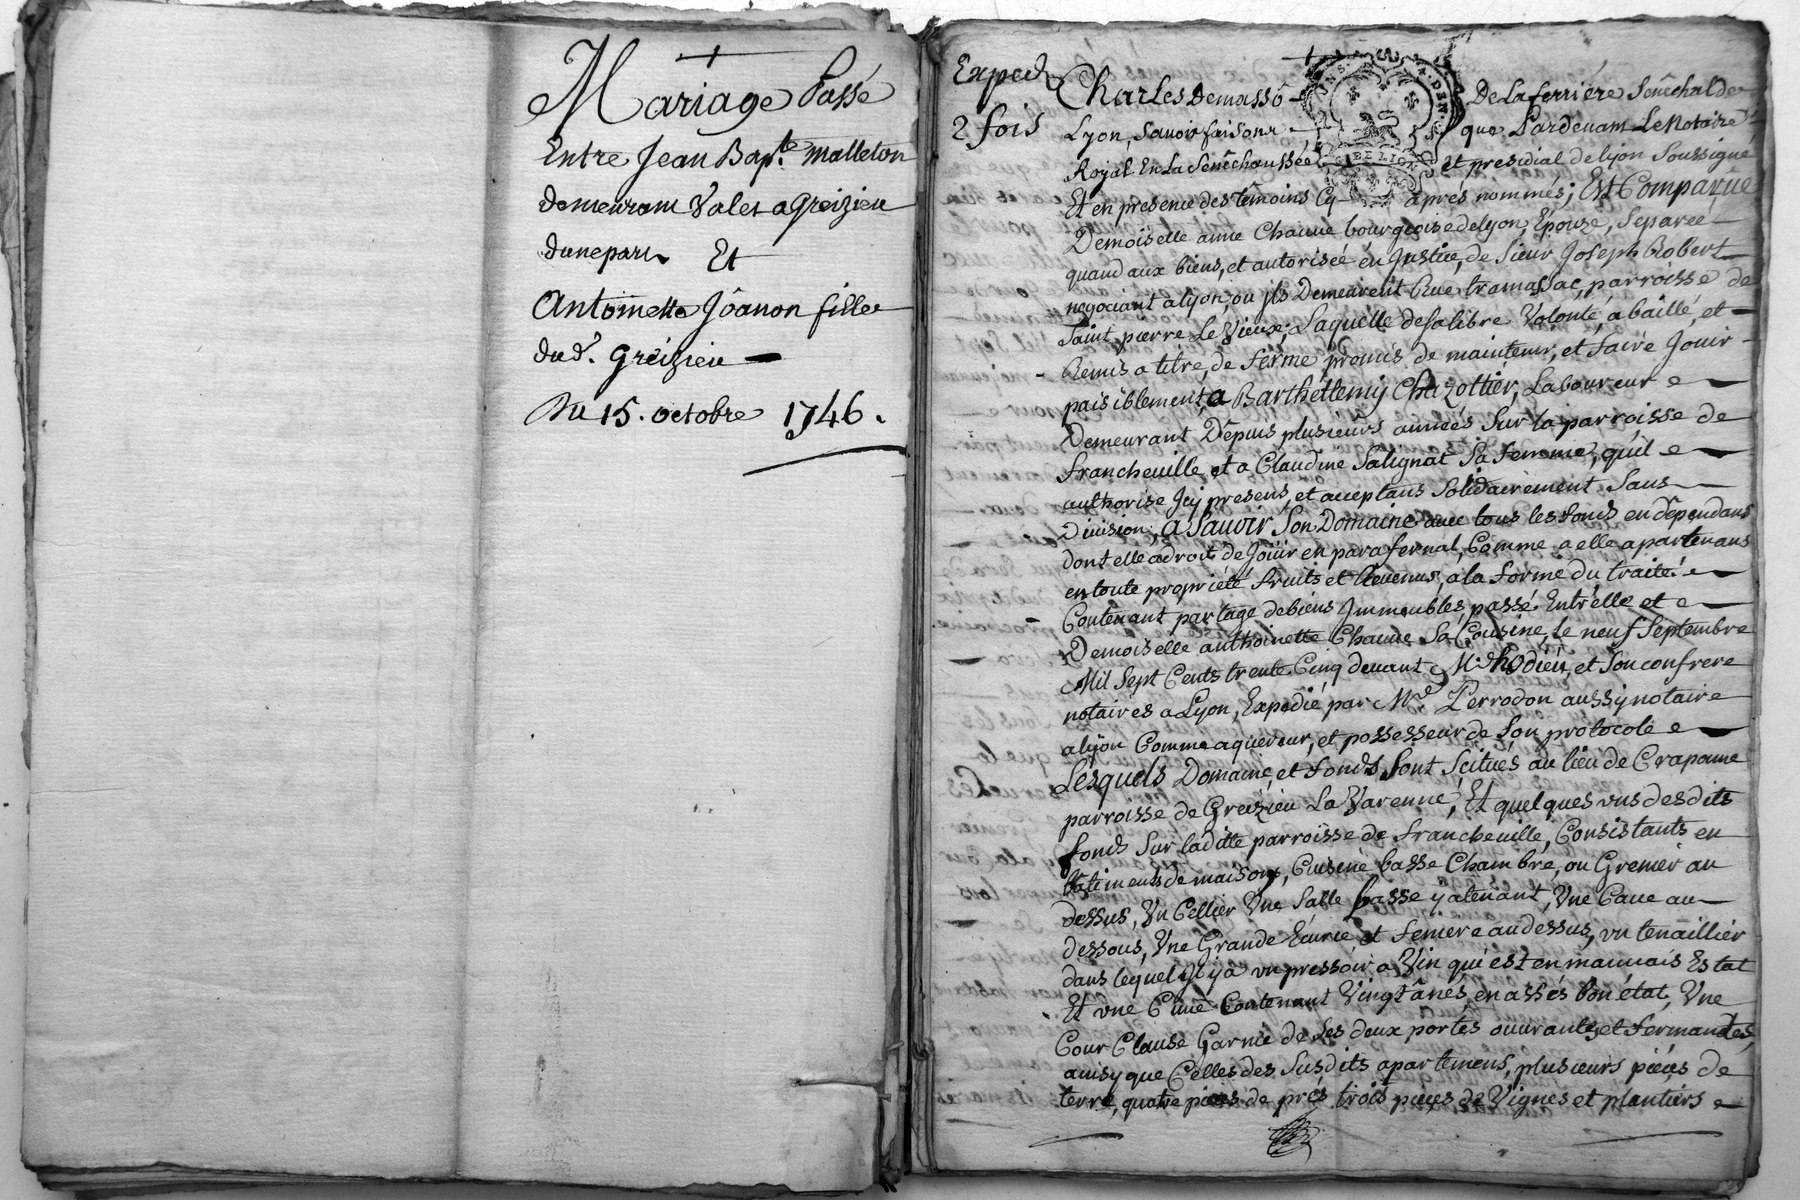 Mariage Passé
Entre Jean Bap.te Malleton
demeurant Valet a Greizieu
dunepart Et
Antoinette Joanon fille
dud. Greizieu
Du 15. octobre 1746.
Exped
2 fois
Charles Demasso De Laferriére Senéchal de
Lyon, Savoir faisons que Pardevant Le Notaire
Royal En La Senéchaussée et presidial de lyon Soussigné
Et en presence des témoins Cy aprés nommés; Est Comparüe
Demoiselle anne Chauue bourgeoise de lyon, Epouze, Separée
quand aux biens, et autorisée en Justice, de Sieur Joseph Robert
negociant a lyon, ou jls Demeurent Rue tramassac, parroisse de
Saint pierre Le Vieux; Laquelle de sa libre Volonté, a baillé, et
Remis a titre, de ferme promis de maintenir, et faire Jouir
paisiblement, a Barthellemy Chazottier, Laboureur
Demeurant Depuis plusieurs années Sur la parroisse de
francheuille, et a Claudine Salignat Sa femme, qu'il
authorise Jcy presens, et acceptans Solidairement Sans
Diuision; a Sauoir Son Domaine auec tous les fonds en dépendans
dont elle a droit de Jouir en parafernal, Comme a elle apartenans
en toute propriété fruits et Reuenus, a la forme du traité
Contenant partage de biens Jmmeubles, passé Entr'elle et
Demoiselle anthoinette Chauue Sa Cousine, le neuf Septembre
Mil Sept Cents trente Cinq deuant M.e hodieu, et Son confrere
notaires a Lyon, Expedié par M.e Perrodon aussy notaire
a lyon Comme aquereur, et possesseur de Son protocole
Lesquels Domaine, et fonds, Sont Scitués au lieu de Craponne
parroisse de Greizieu La Varenne, Et quelques vns desdits
fonds Sur laditte parroisse de francheuille, Consistants en
batiments de maisons, Cuisine basse Chambre, ou Grenier au
dessus, Vn Cellier Vne Salle basse y atenant, Vne Caue au
dessous, Vne Grande Ecurie et feniere au dessus, vn tenaillier
dans lequel Jl y a vn pressoir a Vin qui est en mauuais Estat
Et vne Cuue Contenant Vingt ânées, en assés bon état, Vne
Cour Clause Garnie de Ses deux portes ouurantes et fermantes,
ainsy que Celles des Susdits apartemens, plusieurs pieces de
terre, quatre pieces de prés, trois pieces de Vignes et plantiers